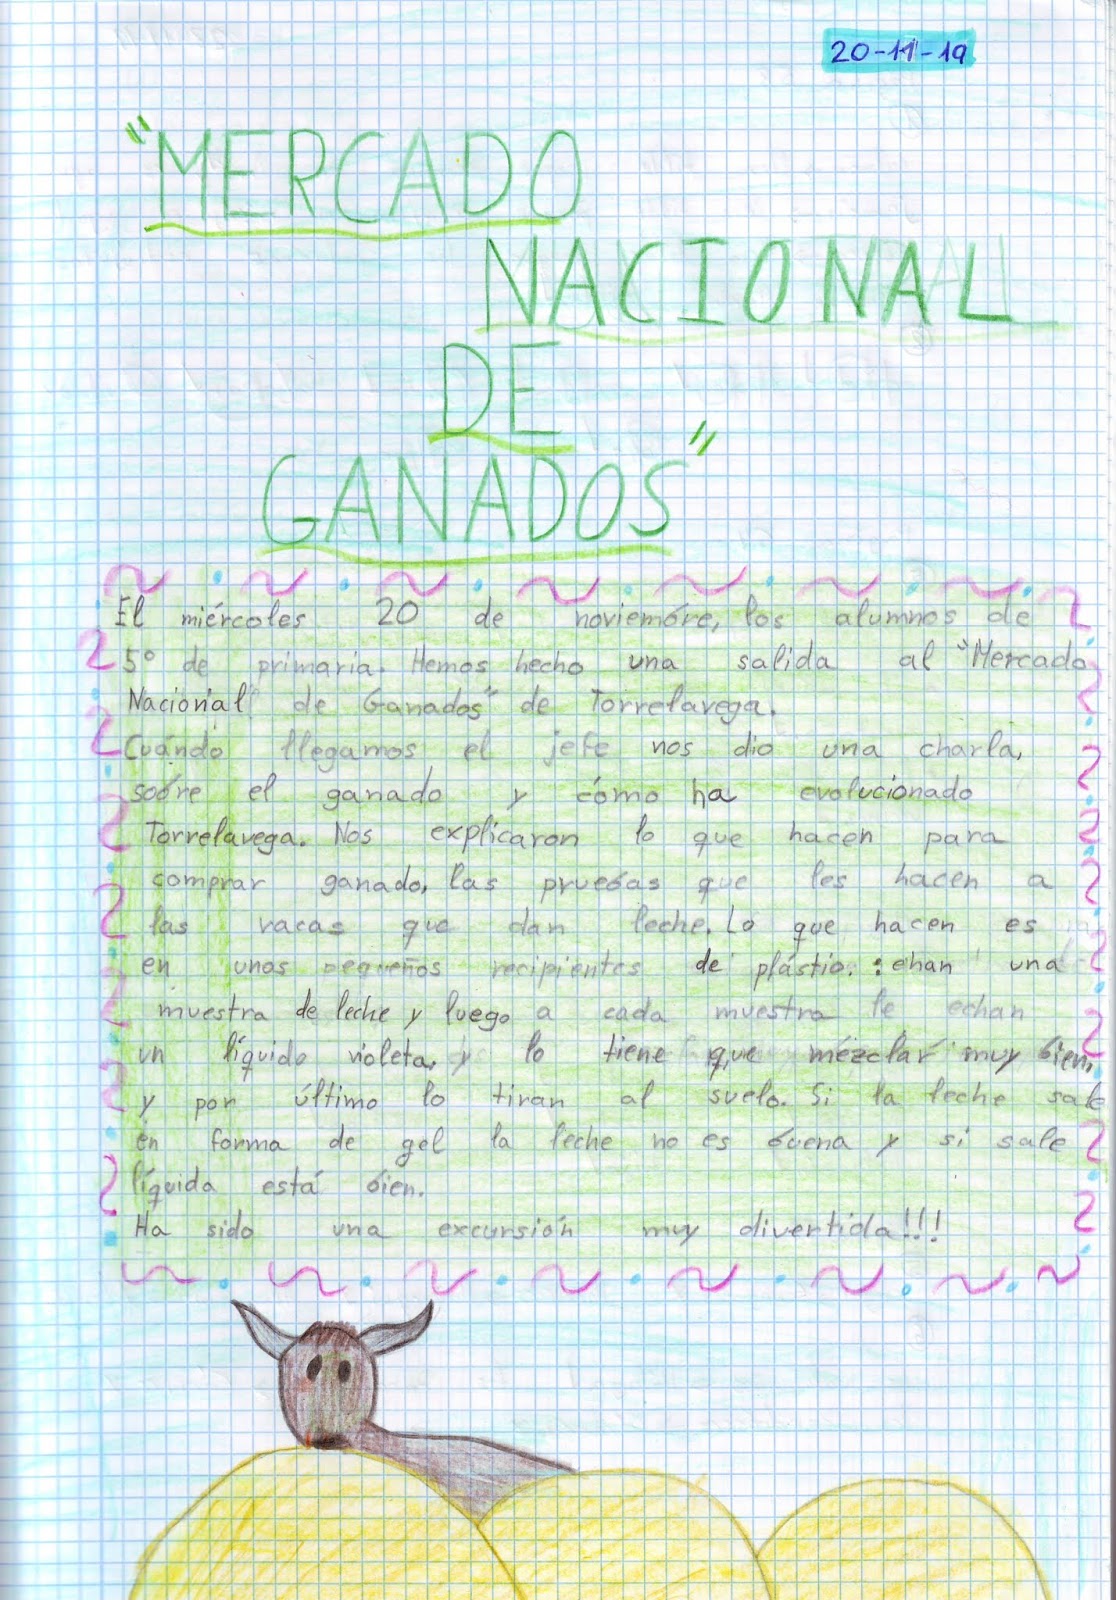 20-11-19
"MERCADO
NACIONAL
DE
GANADOS"
El miércoles 20 de noviembre, los alumnos de
5º de primaria. Hemos hecho una salida al "Mercado
Nacional de Ganados" de Torrelavega.
Cuándo llegamos el jefe nos dio una charla,
sobre el ganado y cómo ha evolucionado
Torrelavega. Nos explicaron lo que hacen para
comprar ganado, las pruebas que les hacen a
las vacas que dan leche. Lo que hacen es
en unos pequeños recipientes de plástio. : ehan una
muestra de leche y luego a cada muestra le echan
un líquido violeta. y lo tiene que mézclar muy bien,
y por último lo tiran al suelo. Si la leche sale
en forma de gel la leche no es buena y si sale
líquida está bien.
Ha sido una excursión muy divertida!!!